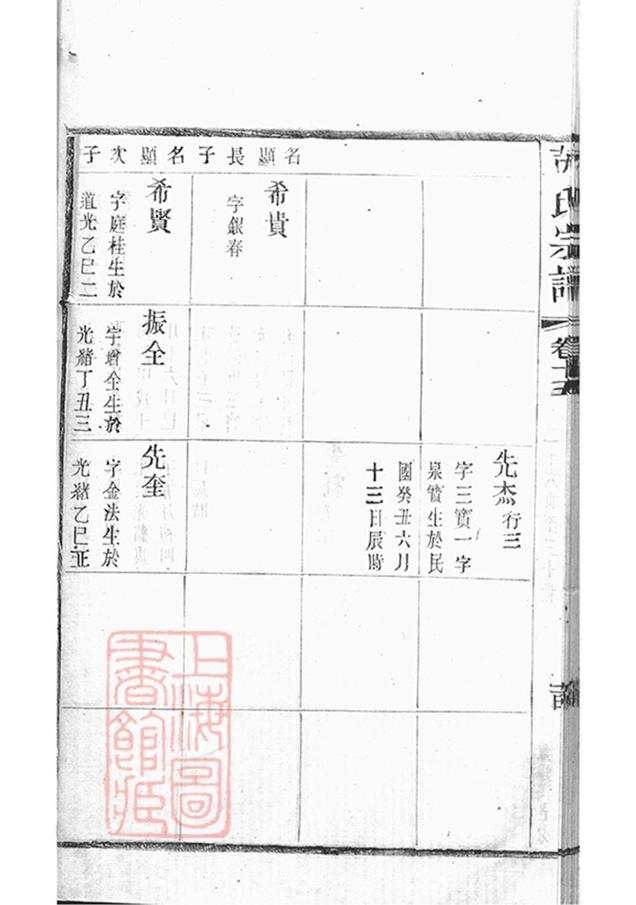 胡氏宗譜
卷十三
名顯長子
名顯次子
希貴
字銀春
希賢
字庭桂生於
道光乙巳二
振全
字增全生於
光緒丁丑三
先杰行三
字三寶一字
泉寶生於民
國癸丑六月
十三日辰時
先奎
字金法生於
光緒乙巳正
上海圖
書館藏